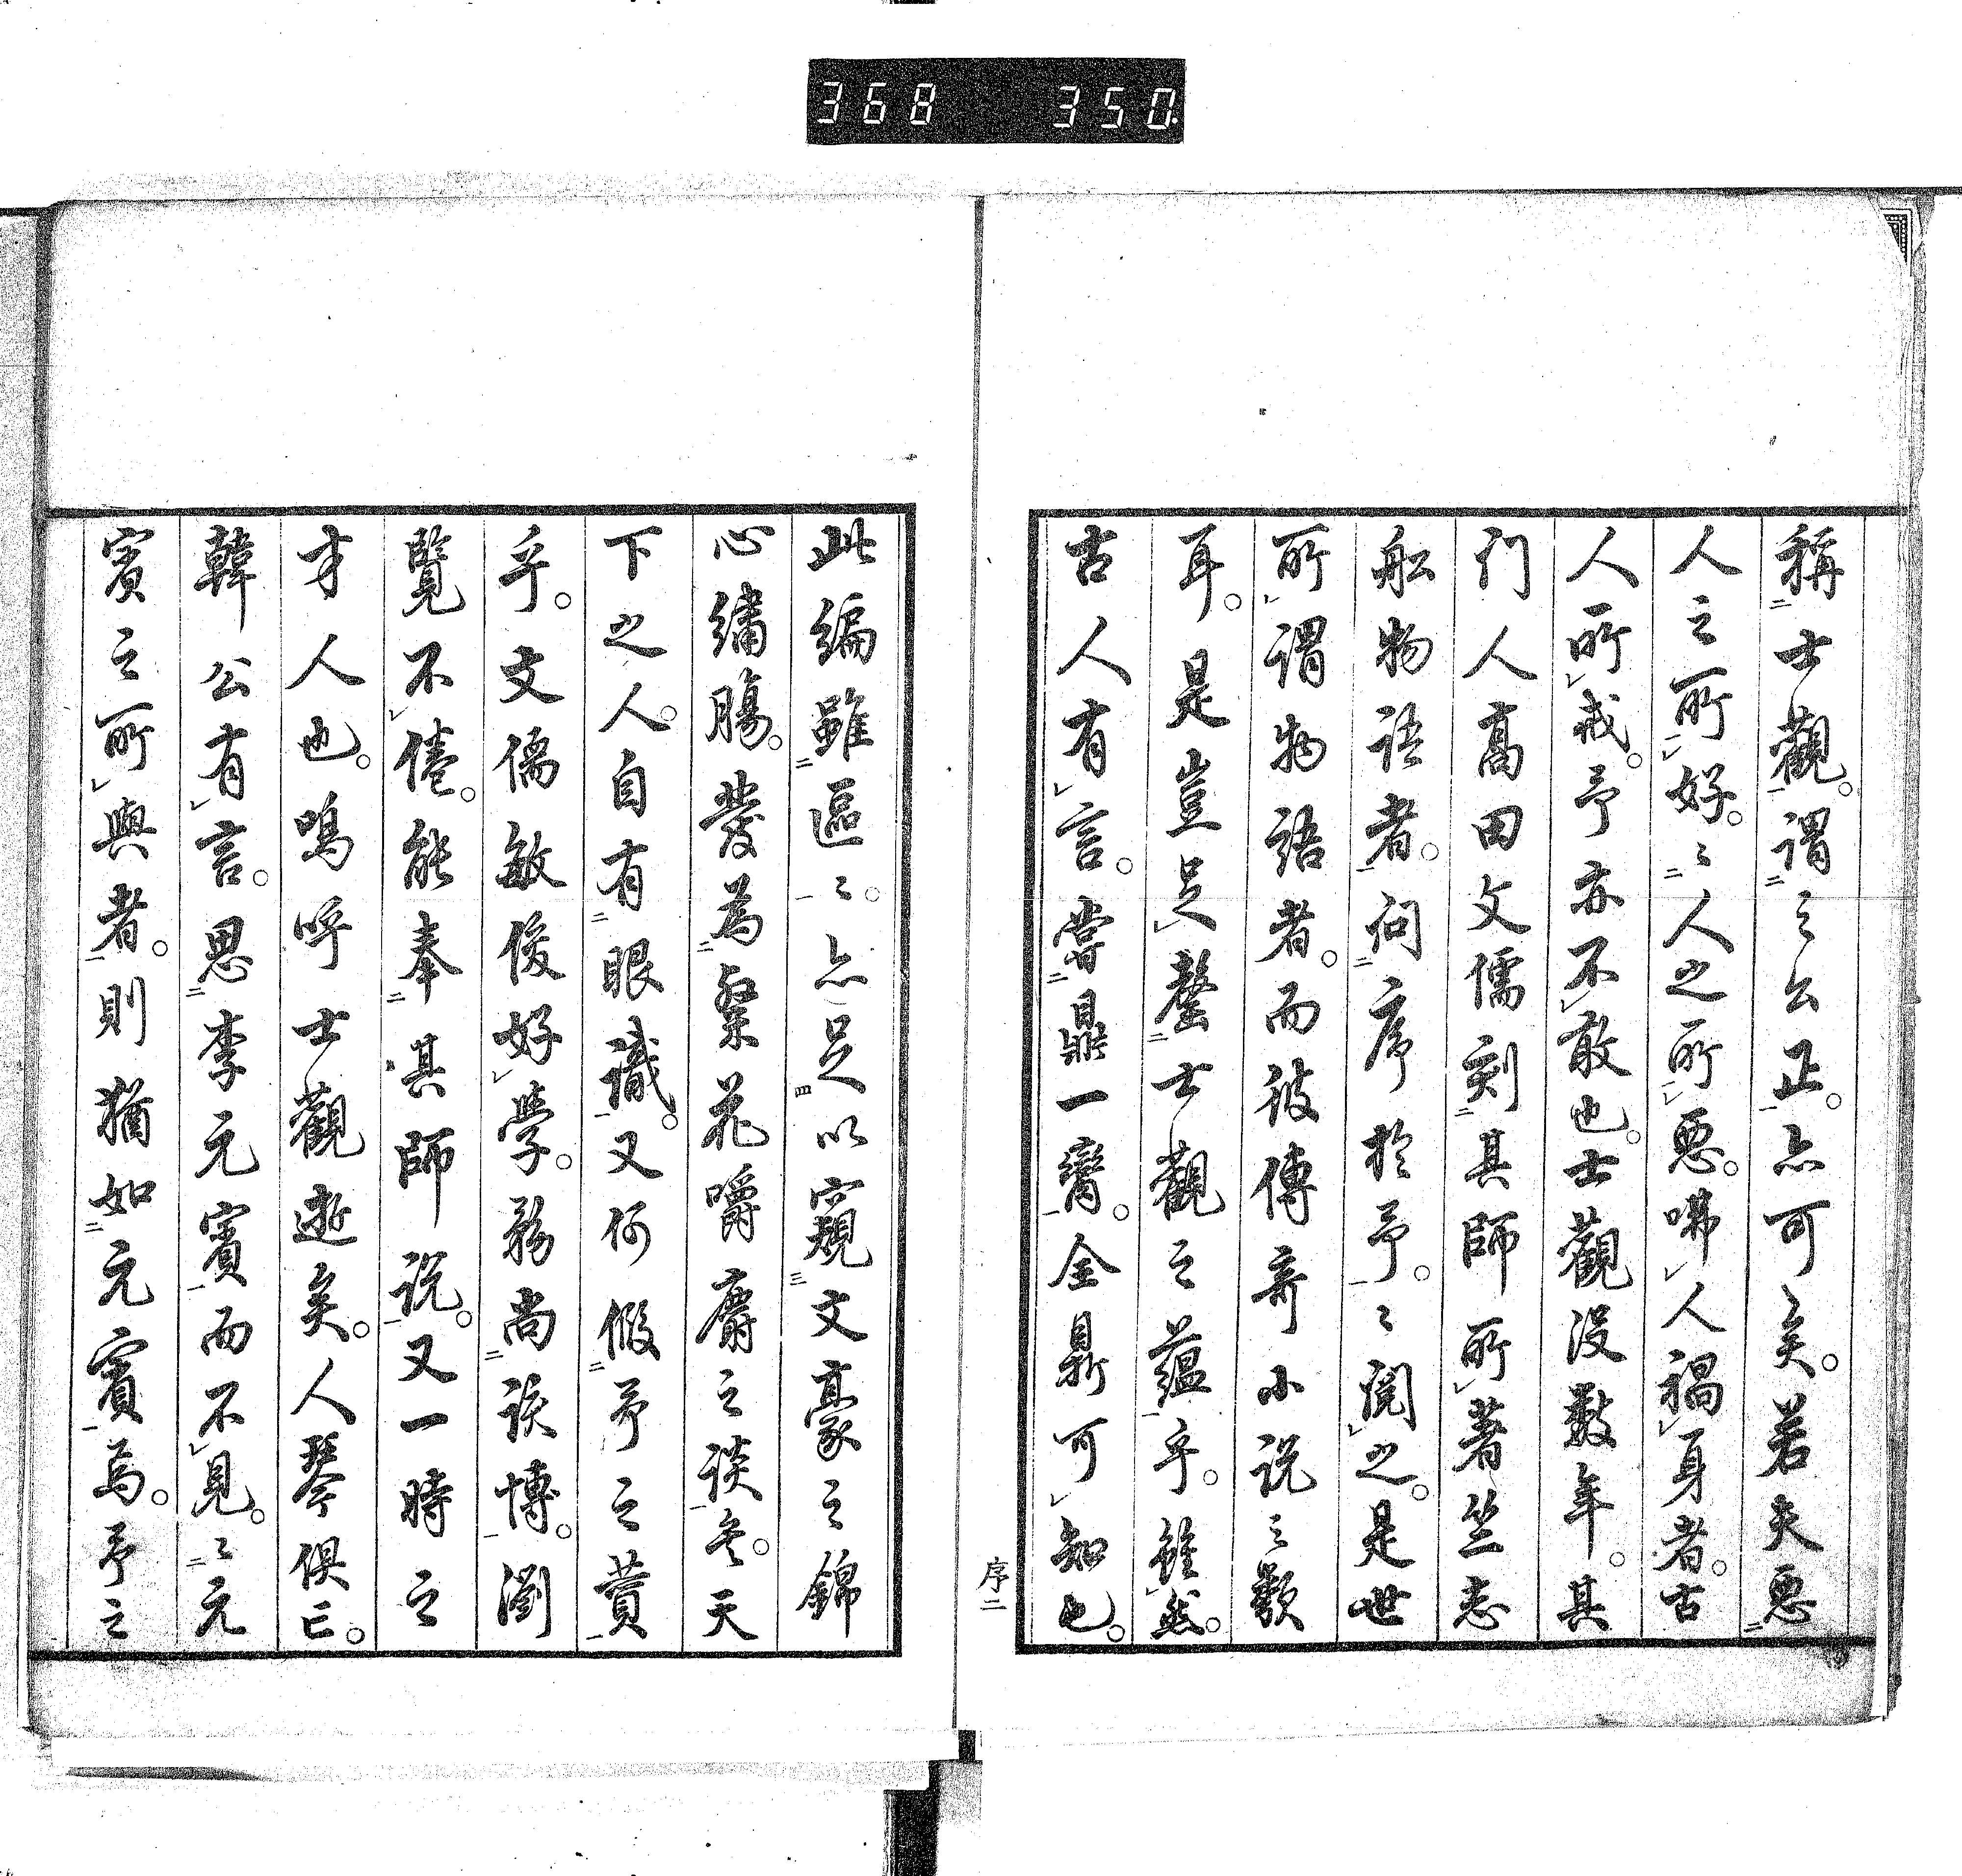 368 350
稱士觀。謂之公正。亦可矣。若夫惡
人之所好。〻人之所惡。咈人禍身者。古
人所戒。予亦不敢也。士觀沒數年。其
門人高田文儒刻其師所著竺志
舩物語者。問序於予。〻閲之。是世
所謂物語者。而彼傳奇小説之歟
耳。是豈足罄士觀之蘊乎。雖然。
古人有言。嘗鼎一臠。全鼎可知也。
序二
此編雖區〻。亦足以窺文豪之錦
心繡腸。發為粲花嚼麝之談矣。天
下之人。自有眼識。又何假予之賛
乎。文儒敏俊好學。務尚談博。瀏
覽不倦。能奉其師説。又一時之
才人也。嗚呼士觀逝矣。人琴俱亡。
韓公有言。思李元賓而不見。〻元
賓之所與者。則猶如元賓焉。予之